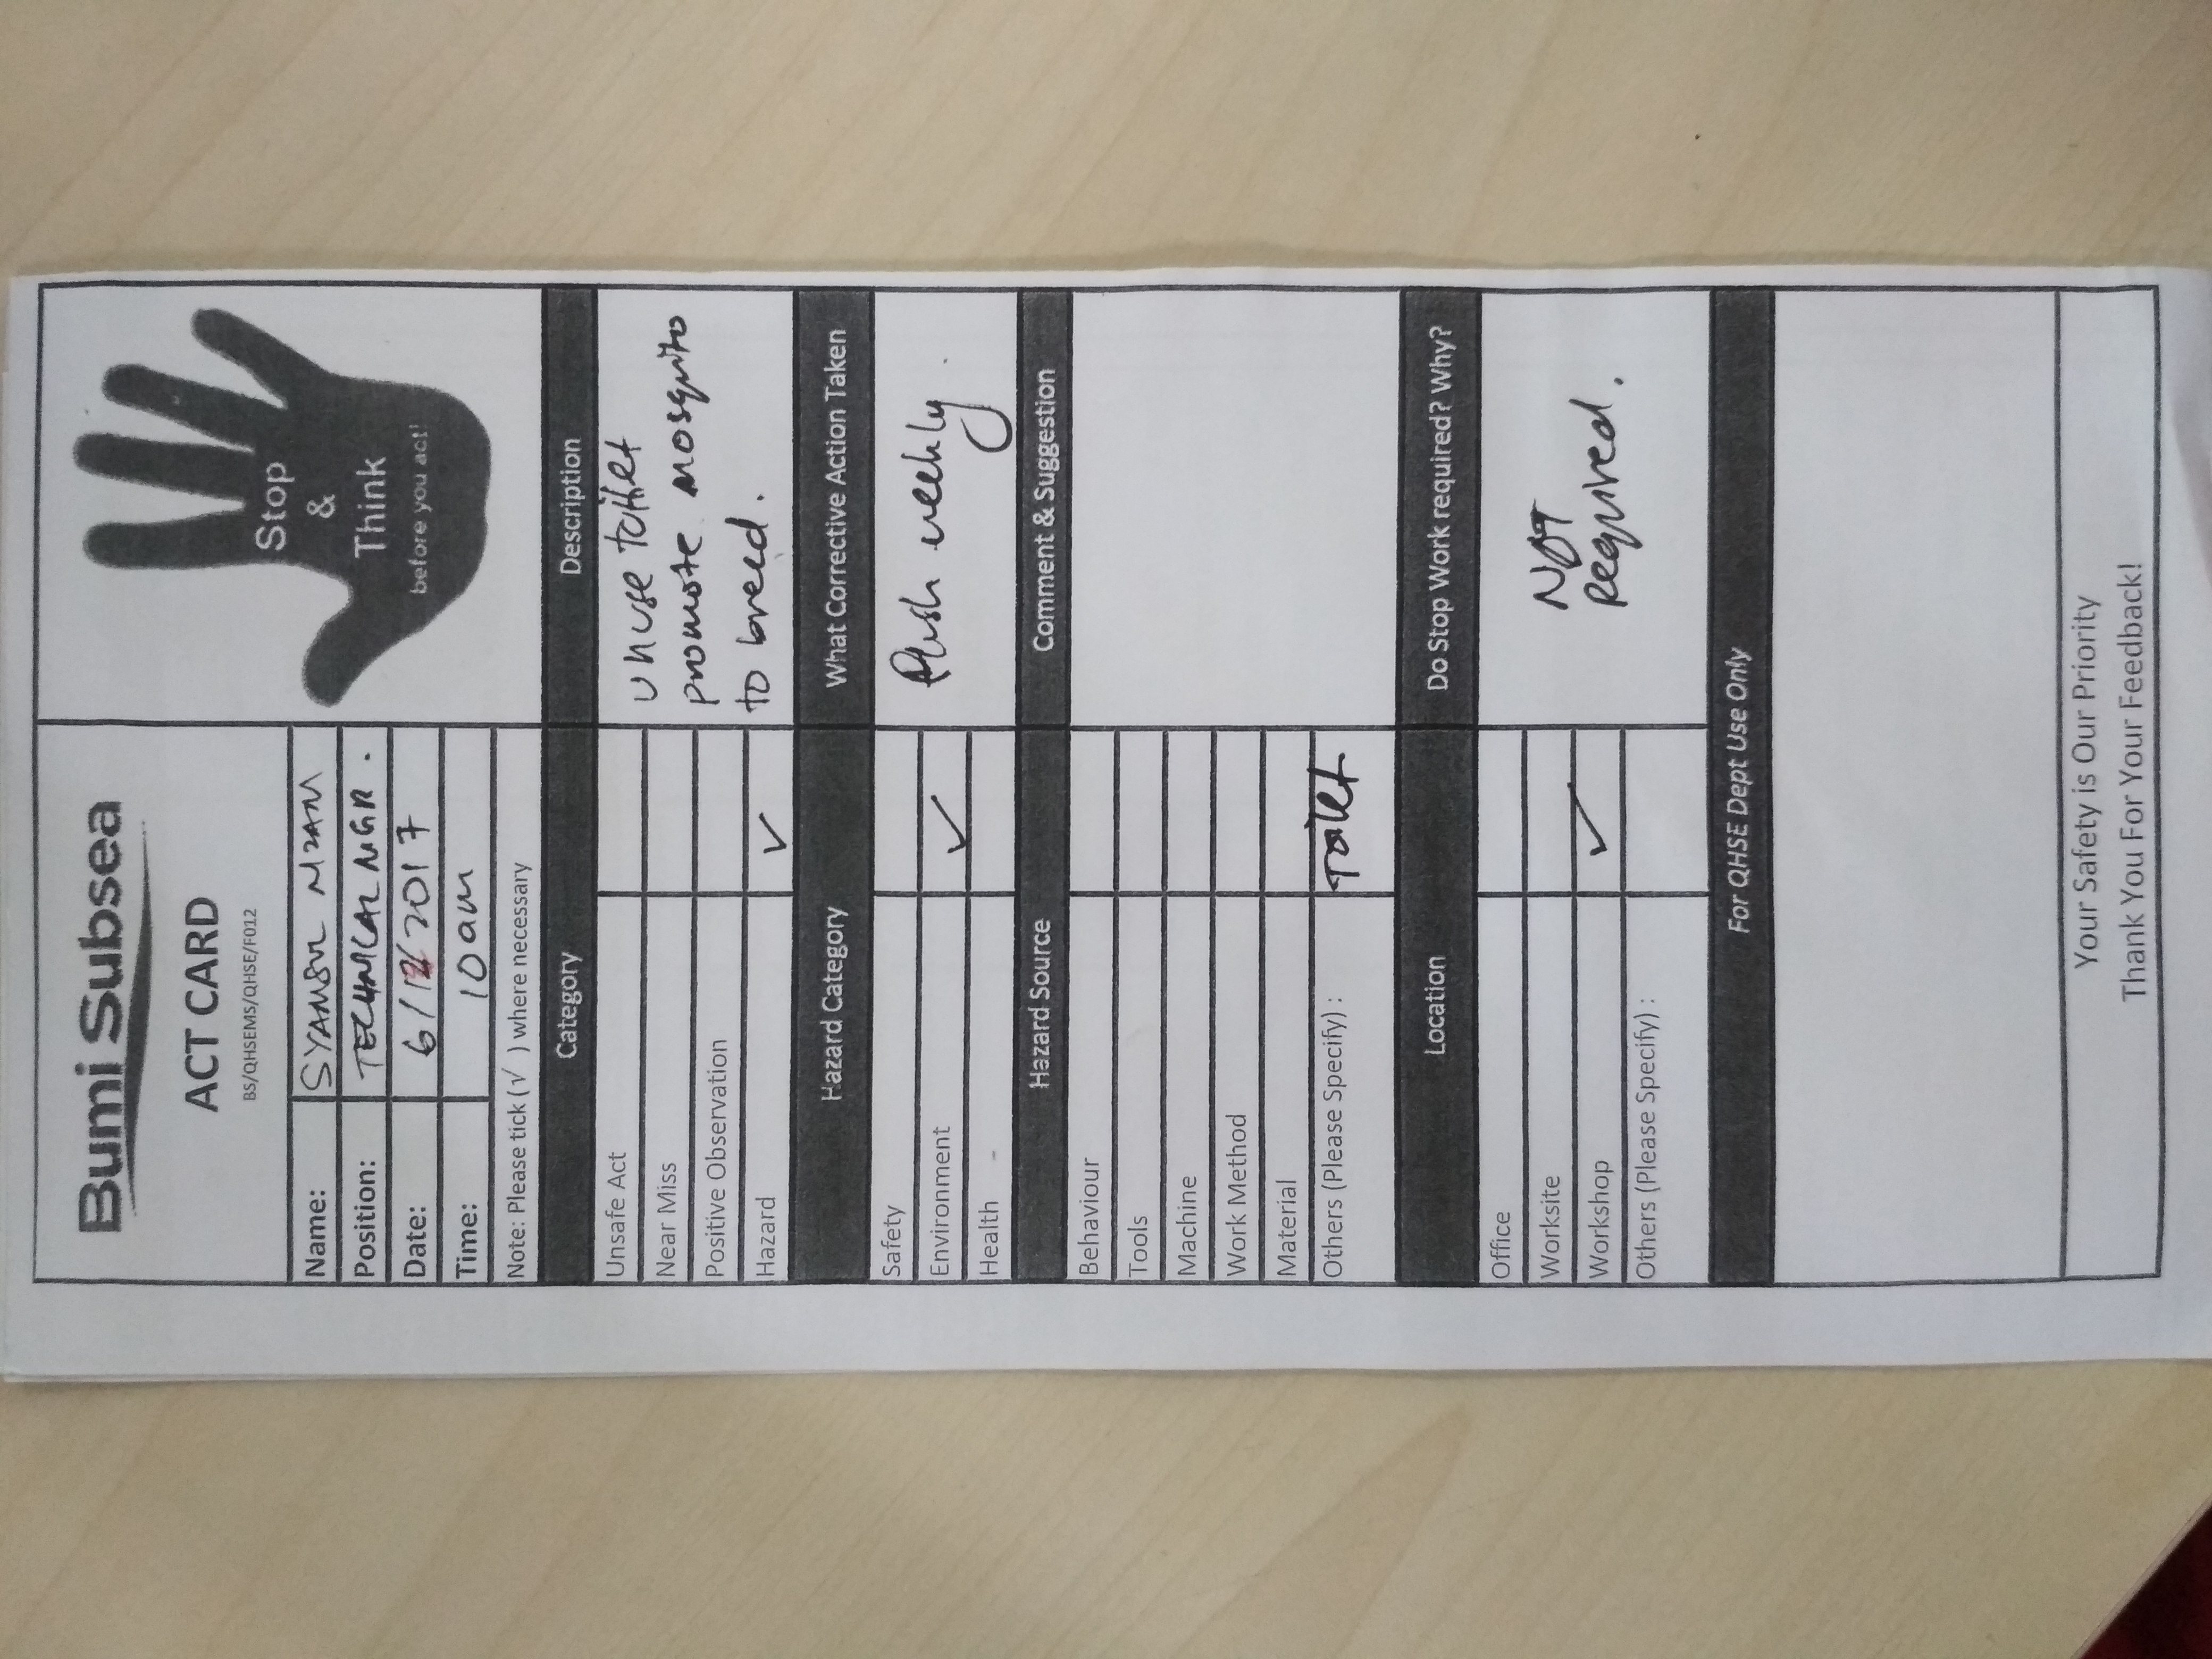 Bumi Subsea
ACT CARD
BS/QHSEMS/QHSE/F012
Stop
&
Think
before you act!
Name: SYAMSUL NIZAM
Position: TECHNICAL MGR.
Date: 6/ /2017
Time: 10am
Note: Please tick (√ ) where necessary
Category
Description
Unsafe Act
Near Miss
Positive Observation
Hazard ✓
unuse toilet
promote mosquito
to breed.
Hazard Category
What Corrective Action Taken
Safety
Environment ✓
Health
flush weekly.
Hazard Source
Comment & Suggestion
Behaviour
Tools
Machine
Work Method
Material
Others (Please Specify) : Toilet
Location
Do Stop Work required? Why?
Office
Worksite
Workshop ✓
Others (Please Specify) :
NOT
Required.
For QHSE Dept Use Only
Your Safety is Our Priority
Thank You For Your Feedback!